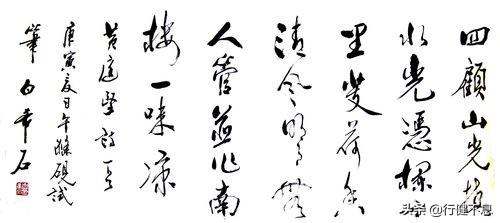 四顧山光接
水光憑欄十
里芰荷香
清風明月無
人管並作南
樓一味涼
黃庭堅詩
庚寅夏日午硯試
筆白石
头条 @行健不息